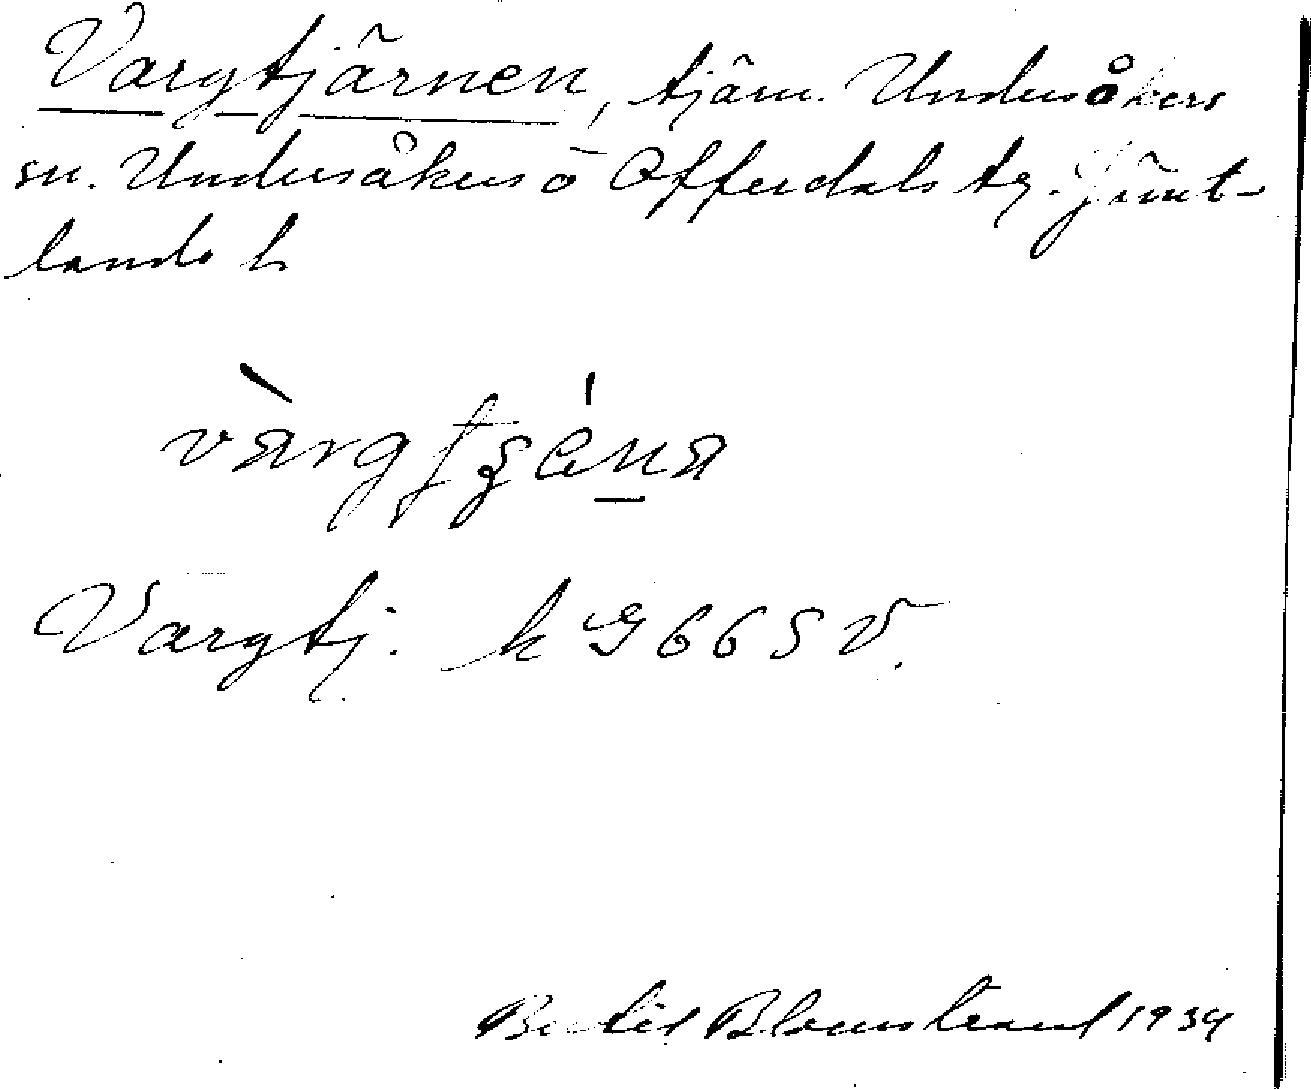 Vargtjärnen, tjärn. Undersåkers
sn. Undersåkers o Offerdals tg. Jämt-
lands l.
Vargtj. k G 66 S V.
Bertil Blomstrand 1934